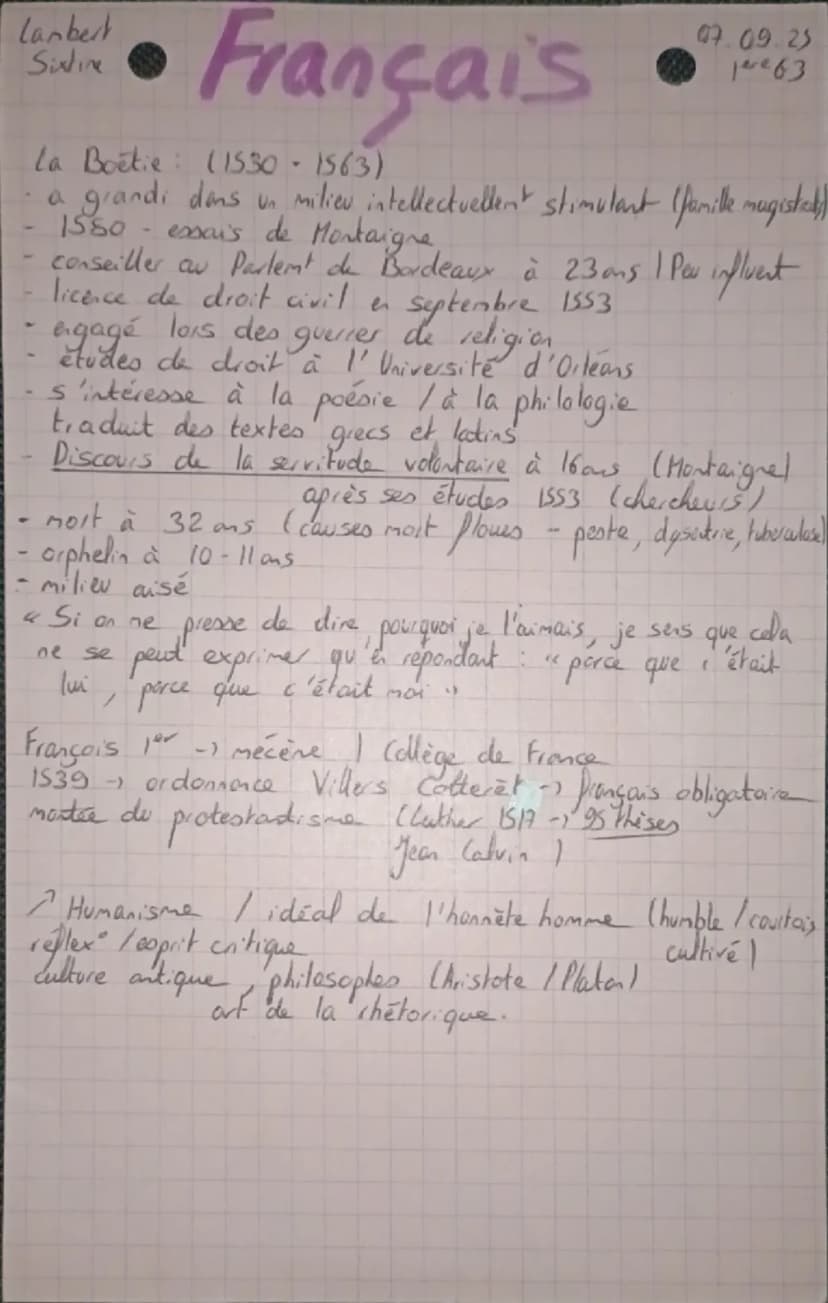 Lambert
Sixtine
Français
07.09.25
1ère G3
La Boétie : (1530 - 1563)
- a grandi dans un milieu intellectuellemt stimulant (famille magistrats)
- 1580 - essais de Montaigne
- conseiller au Parlemt de Bordeaux à 23 ans / Peu influent
- licence de droit civil en septembre 1553
- engagé lors des guerres de religion
- études de droit à l'Université d'Orléans
- s'intéresse à la poésie / à la philologie
traduit des textes grecs et latins
- Discours de la servitude volontaire à 16 ans (Montaigne)
après ses études 1553 (chercheurs)
- mort à 32 ans (causes mort floues - peste, dysentrie, tuberculose)
- orphelin à 10-11 ans
- milieu aisé
« Si on me presse de dire pourquoi je l'aimais, je sens que cela
ne se peut exprimer qu'en répondant : « parce que c'était
lui, parce que c'était moi »
François 1er -> mécène / Collège de France
1539 -> ordonnance Villers Cotterêt -> français obligatoire
montée du protestantisme (Luther 1517 -> 95 thèses
Jean Calvin )
↗ Humanisme / idéal de l'honnête homme (humble / courtois
cultivé)
réflex° / esprit critique
culture antique, philosophes (Aristote / Platon)
art de la rhétorique.